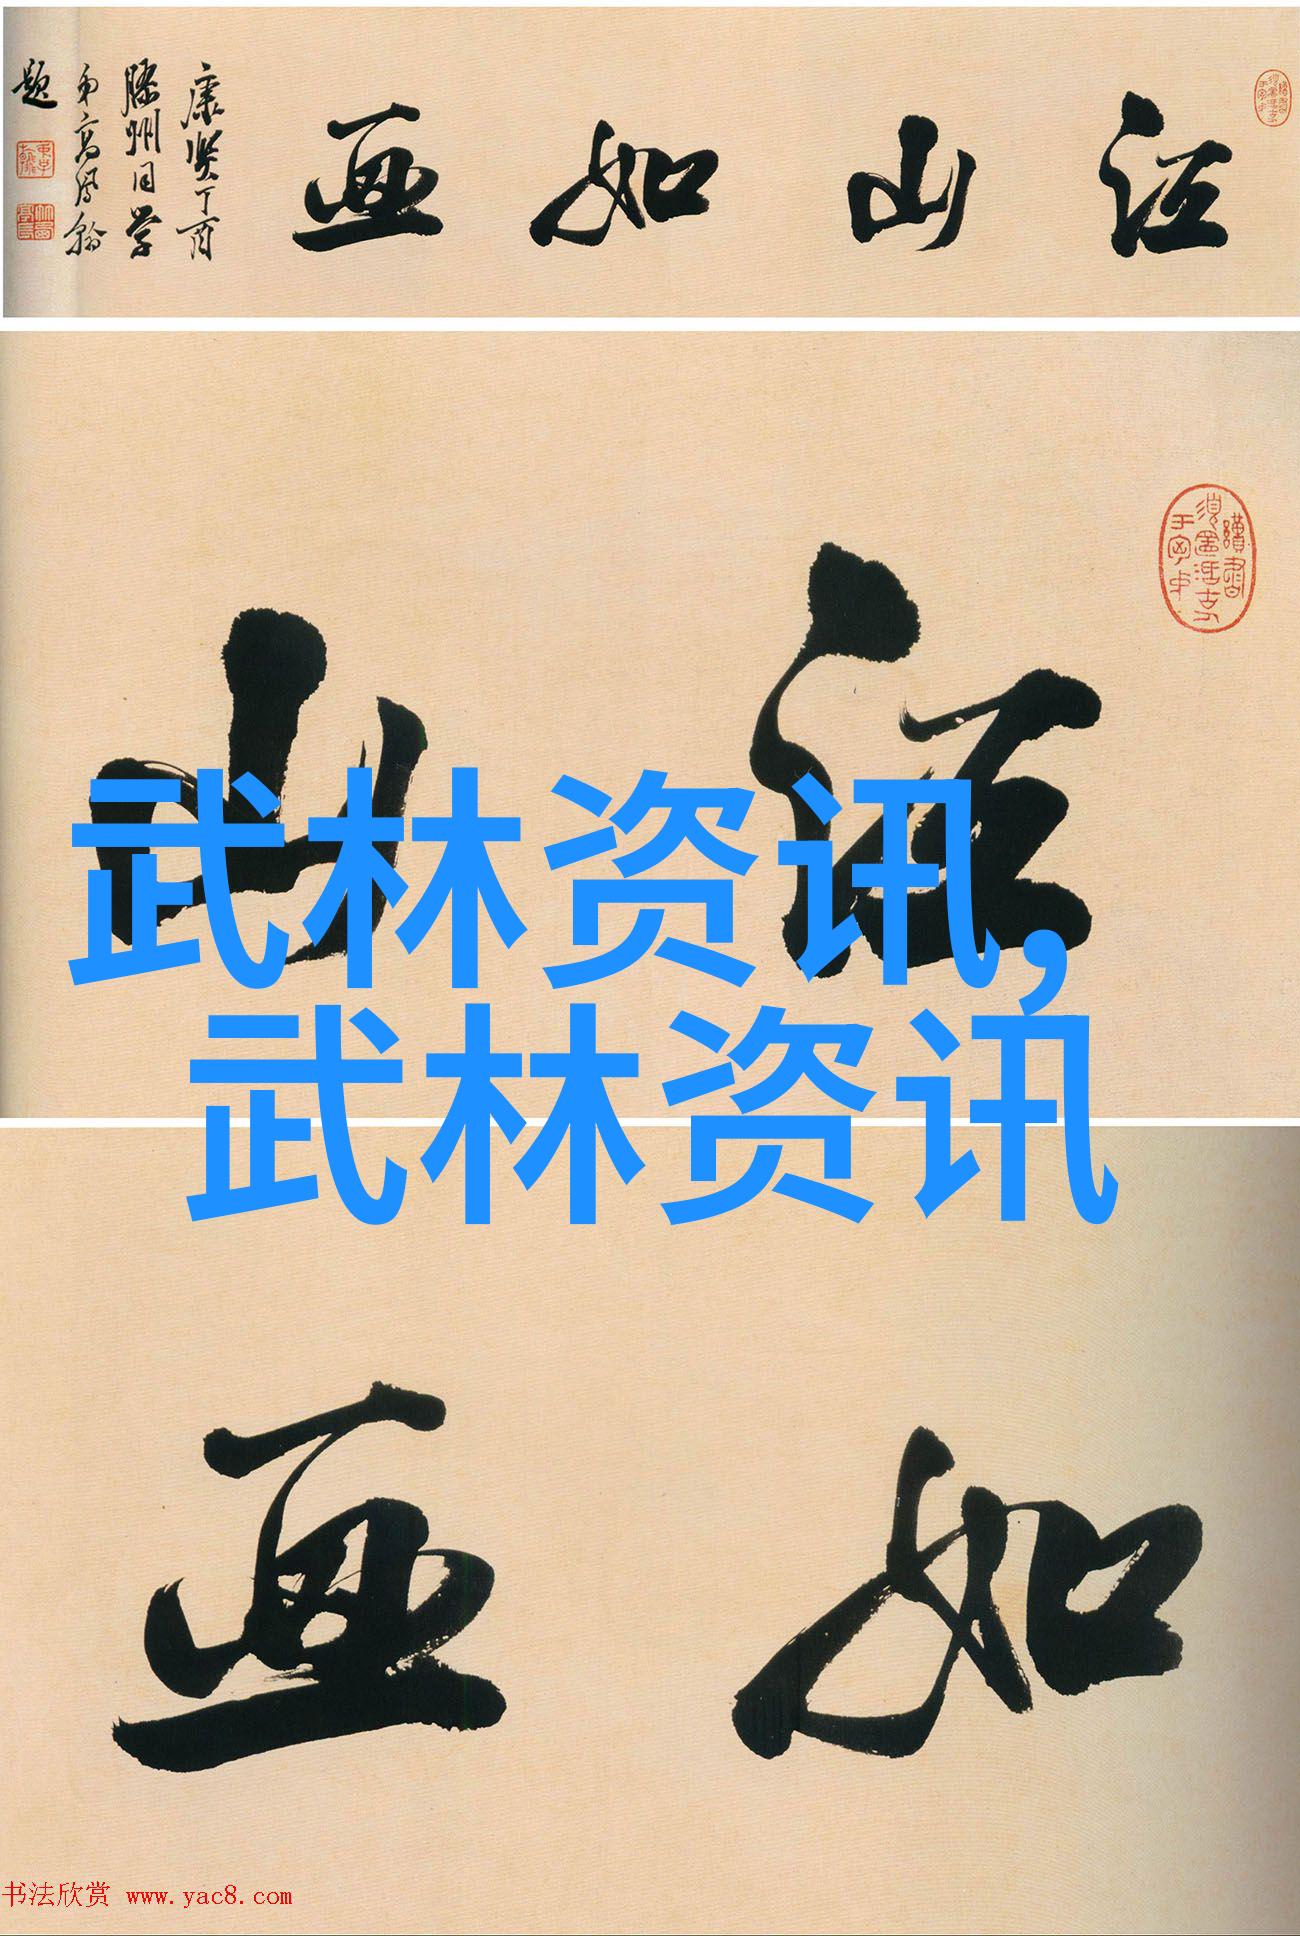 江山如画
康煕丁酉
膠州同学
弟高鳳翰
題
江山
武林资讯,
武林资讯
如画
书法欣赏 www.yac8.com